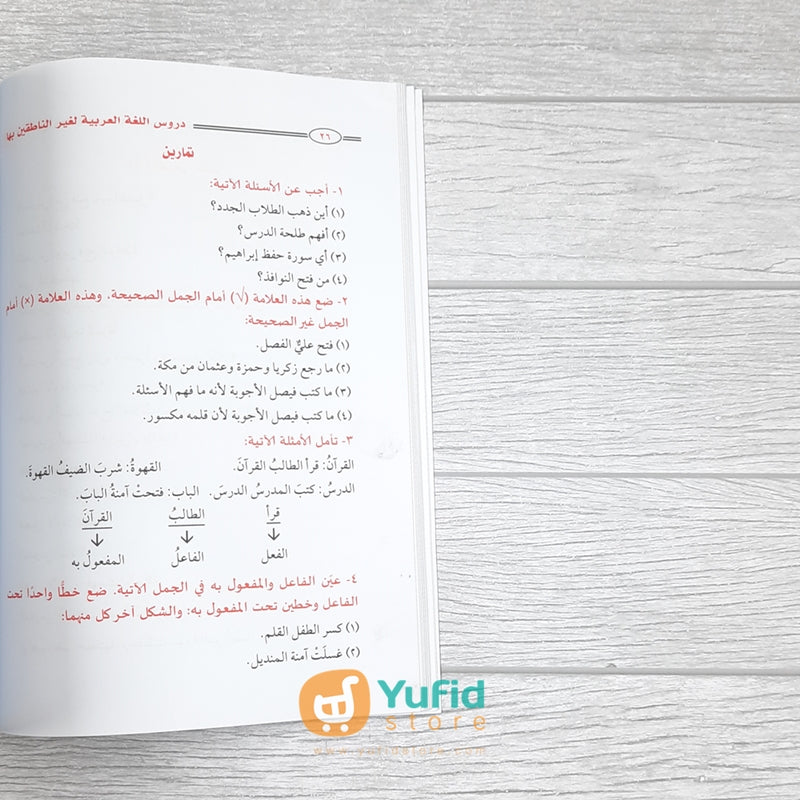 دروس اللغة العربية لغير الناطقين بها
٢٦
تمارين
١- أجب عن الأسئلة الآتية:
(١) أين ذهب الطلاب الجدد؟
(٢) أفهم طلحة الدرس؟
(٣) أي سورة حفظ إبراهيم؟
(٤) من فتح النوافذ؟
٢- ضع هذه العلامة (√) أمام الجمل الصحيحة، وهذه العلامة (×) أمام
الجمل غير الصحيحة:
(١) فتح عليٌّ الفصل.
(٢) ما رجع زكريا وحمزة وعثمان من مكة.
(٣) ما كتب فيصل الأجوبة لأنه ما فهم الأسئلة.
(٤) ما كتب فيصل الأجوبة لأن قلمه مكسور.
٣- تأمل الأمثلة الآتية:
القرآنُ: قرأ الطالبُ القرآنَ. القهوةُ: شربَ الضيفُ القهوةَ.
الدرسُ: كتبَ المدرسُ الدرسَ. الباب: فتحتْ آمنةُ البابَ.
قرأ الطالبُ القرآنَ
الفعل الفاعلُ المفعولُ به
٤- عيّن الفاعل والمفعول به في الجمل الآتية. ضع خطًّا واحدًا تحت
الفاعل وخطين تحت المفعول به: والشكل آخر كل منهما:
(١) كسر الطفل القلم.
(٢) غسلَتْ آمنة المنديل.
Yufid
store